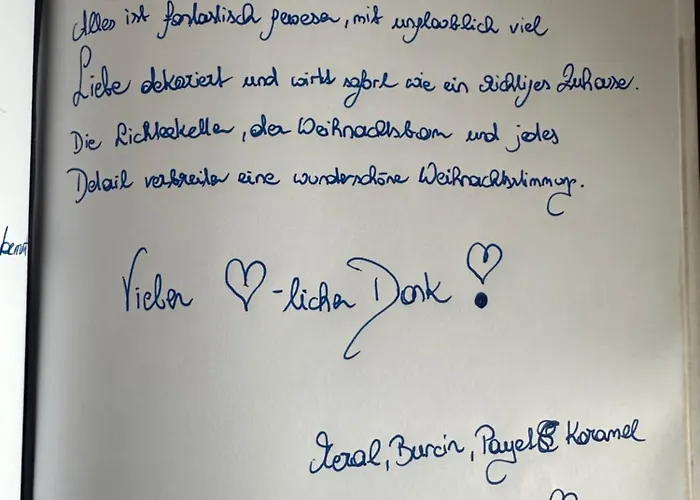 Alles ist fantastisch gewesen, mit unglaublich viel
Liebe dekoriert und wirkt sofort wie ein richtiges Zuhause.
Die Lichterketten, der Weihnachtsbaum und jedes
Detail verbreiten eine wunderschöne Weihnachtsstimmung.
Vielen ♡-lichen Dank !
Meral, Burcin, Payel & Karamel